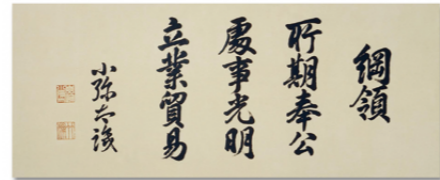 綱領
所期奉公
處事光明
立業貿易
小弥太誌